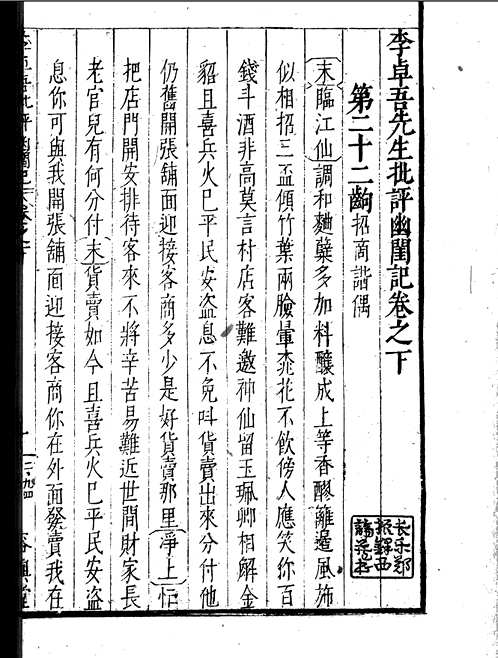 李卓吾先生批評幽閨記卷之下
第二十二齣 招商諧偶
末臨江仙調和麯糵多加料釀成上等香醪籬邊風旆
似相招三盃傾竹葉兩臉暈桃花不飲傍人應笑你百
錢斗酒非高莫言村店客難邀神仙留玉珮卿相解金
貂且喜兵火巳平民安盜息不免呌貨賣出來分付他
仍舊開張舖面迎接客商多少是好貨賣那里淨上忙
把店門開安排待客來不將辛苦易難近世間財家長
老官兒有何分付末貨賣如今且喜兵火巳平民安盜
息你可與我開張舖面迎接客商你在外面發賣我在
長樂鄭
振鐸西
諦藏書